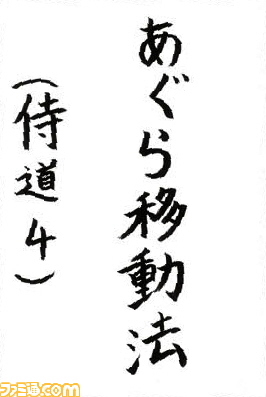 あぐら移動法
（侍道4）
ファミ通.com